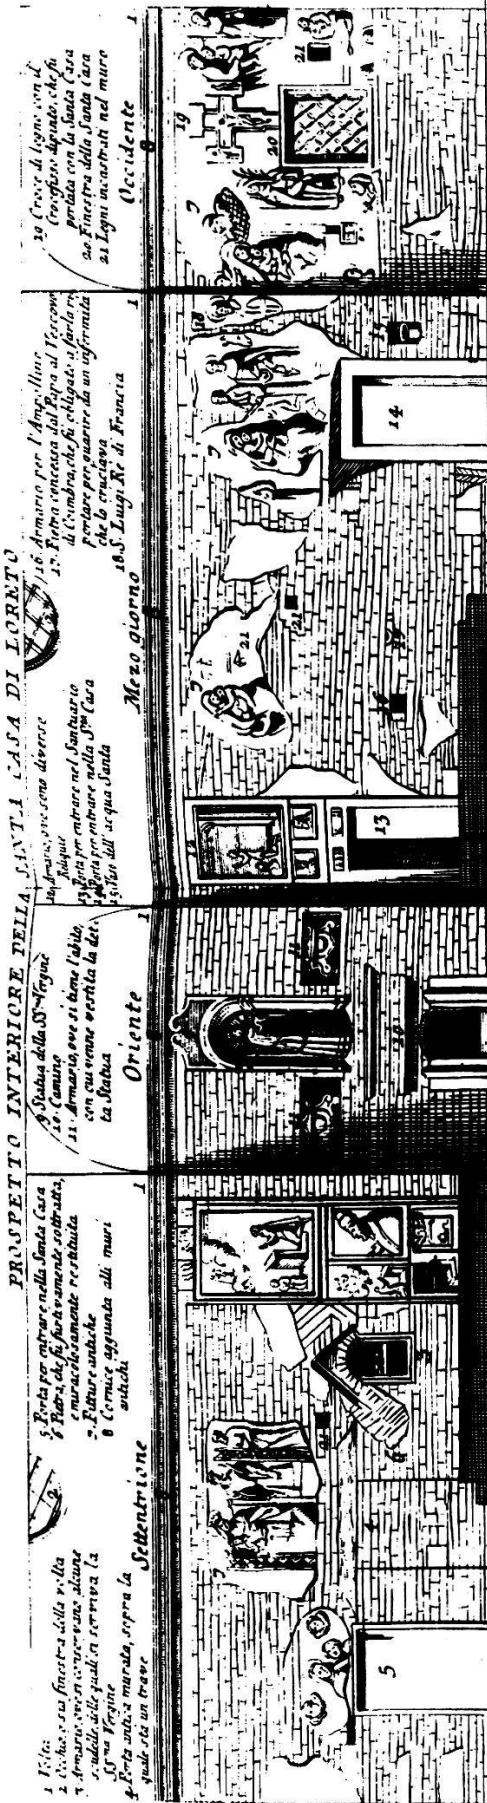 PROSPETTO INTERIORE DELLA SANTA CASA DI LORETO
1 Volta
2 Occhio, o sia finestra della volta
3 Armario ove si conservano alcune
scudelle, delle quali si serviva la
SS.ma Vergine
4. Porta antica murata, sopra la
quale sta un trave
5. Porta per entrare nella Santa Casa
6 Pietra, che fù furtivamente sottratta,
e miracolosamente restituita
7. Pitture antiche
8 Cornice aggiunta alli muri
antichi
9 Statua della SS.ma Vergine
10. Camino
11. Armario, ove si tiene l'abito,
con cui venne vestita la det.
ta Statua
12. Armario, ove sono diverse
Reliquie
13 Porta per entrare nel Santuario
14 Porta per entrare nella S.ma Casa
15 Vaso dell'acqua Santa
16. Armario per l'Ampolline
17. Pietra concessa dal Papa al Vescovo
di Coimbra, che fù obligato a farla ri
portare per guarire da un infermità
che lo cruciava
18. S. Luigi Rè di Francia
19 Croce di legno con il
Crocefisso dipinto, che fù
portata con la Santa Casa
20. Finestra della Santa Casa
21 Legni incastrati nel muro
Settentrione
1
Oriente
1
Mezo giorno
1
Occidente
1
8
5
7
4
6
3
21
11
11
10
12
13
7
21
21
16
17
7
14
15
18
7
19
20
21